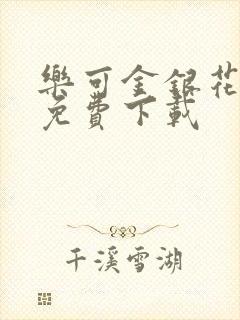 樂可金銀花
免費下載
千溪雪湖